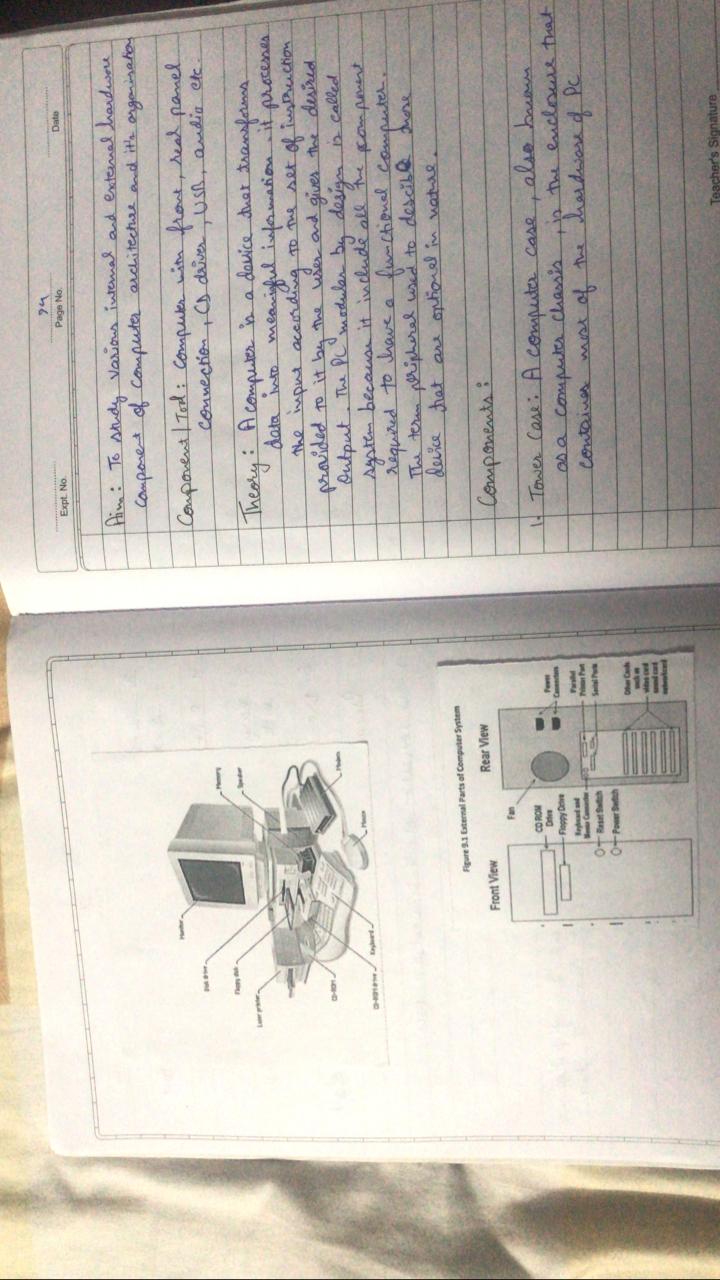 Monitor
Disk drive
Floppy disk
Laser printer
CD-ROM
CD-ROM drive
Keyboard
Mouse
Modem
Speaker
Memory
Figure 9.1 External Parts of Computer System
Front View
Rear View
Fan
CD ROM
Drive
Floppy Drive
Keyboard and
Mouse Connector
Reset Switch
Power Switch
Power
Connectors
Parallel
Printer Port
Serial Ports
Other Cards
such as
video card
sound card
networkcard
Expt. No.
Page No.
Date
Aim: To study various internal and external hardware
component of computer architecture and it's organisation
Component/Tool: Computer with front, real panel
connection, CD driver, USB, audio etc.
Theory: A computer is a device that transforms
data into meaningful information. it processes
the input according to the set of instruction
provided to it by the user and gives the desired
output. The PC modular by design is called
system because it include all the component
required to have a functional computer.
The term peripheral used to descibe those
device that are optional in nature.
Components:
1. Tower Case: A computer case, also known
as a computer chassis, is the enclosure that
contains most of the hardware of PC
Teacher's Signature